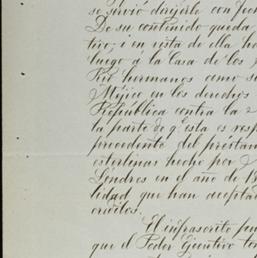 se sirvió dirijirle con fecha
De su contenido queda
tivo; i en vista de ella ha
luego á la Casa de los
hermanos como su
Méjico en los derechos
República contra la
la parte de qe esta es resp
procedente del préstam
esterlinas hecho por
Lóndres en el año de 18
lidad que han aceptad
critos.
El infrascrito pu
que el Poder Ejecutivo ten